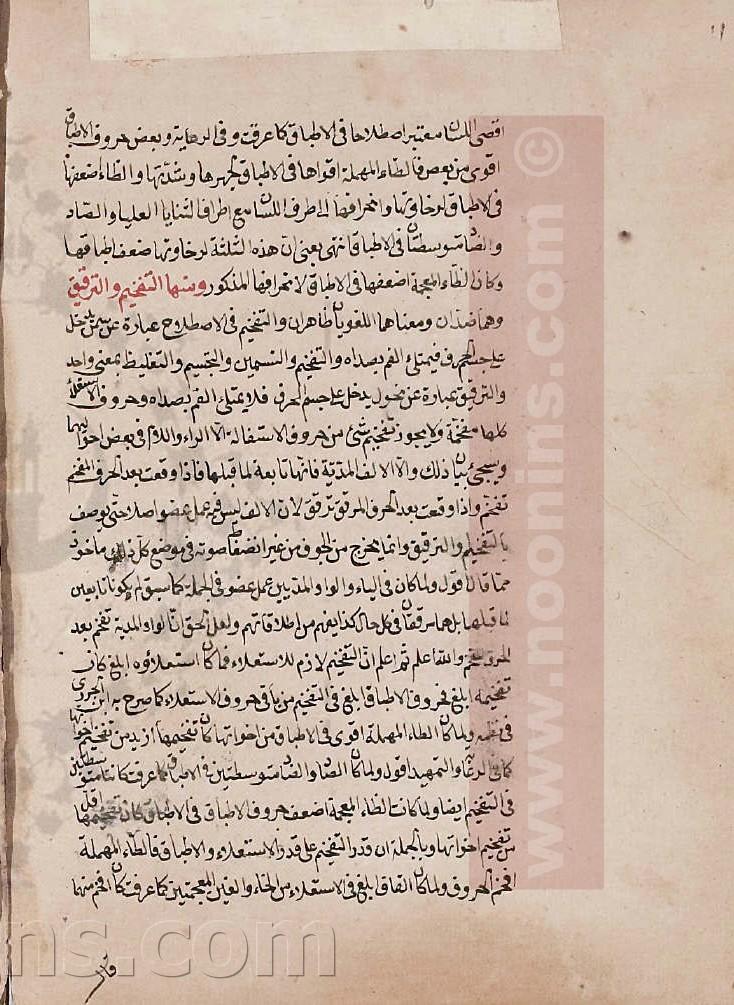 اقصى اللسان معتبر اصطلاحا في الاطباق كما عرفت وفي الرعاية وبعض حروف الاطباق
اقوى من بعض فالطاء المهملة اقواها في الاطباق لجهرها وشدتها والظاء اضعفها
في الاطباق لرخاوتها وانحرافها الى طرف اللسان مع اطراف الثنايا العليا والصاد
والضاد متوسطتان في الاطباق انتهى يعني ان هذه الثلثة لرخاوتها ضعف اطباقها
وكان الظاء المعجمة اضعفها في الاطباق لانحرافها المذكور ومنها التفخيم والترقيق
وهما ضدان ومعناهما اللغويان ظاهران والتفخيم في الاصطلاح عبارة عن سمن يدخل
على جسم الحرف فيمتلئ الفم بصداه والتفخيم والتسمين والتجسيم والتغليظ بمعنى واحد
والترقيق عبارة عن نحول يدخل على جسم الحرف فلا يمتلئ الفم بصداه وحروف الاستعلاء
كلها مفخمة ولا يجوز تفخيم شئ من حروف الاستفالة الا الراء واللام في بعض احوالهما
وسيجئ بيان ذلك والا الالف المدية فانها تابعة لما قبلها فاذا وقعت بعد الحرف المفخم
تفخم واذا وقعت بعد الحرف المرقق ترقق لان الالف ليس فيه عمل عضو اصلا حتى يوصف
بالتفخيم والترقيق وانما يخرج من الجوف من غير انضغاط صوته في موضع كل ذلك ماخوذ
مما قال اقول ولما كان في الياء والواو المديين عمل عضو في الجملة كما سبق لم يكونا تابعين
لما قبلهما بل هما مرققان في كل حال كذا يفهم من اطلاقاتهم ولعل الحق ان الواو المدية تفخم بعد
الحرف المفخم والله اعلم ثم اعلم ان التفخيم لازم للاستعلاء فما كان استعلاؤه ابلغ كان
تفخيمه ابلغ فحروف الاطباق ابلغ في التفخيم من باقي حروف الاستعلاء كما صرح به ابن الجزري
في نظمه ولما كان الطاء المهملة اقوى في الاطباق من اخواتها كان تفخيمها ازيد من تفخيم اخواتها
كما في الرعاية والتمهيد اقول ولما كان الصاد والضاد متوسطتين في الاطباق كما عرفت كانتا متوسطتين
في التفخيم ايضا ولما كانت الظاء المعجمة اضعف حروف الاطباق في الاطباق كان تفخيمها اقل
من تفخيم اخواتها وبالجملة ان قدر التفخيم على قدر الاستعلاء والاطباق فالطاء المهملة
افخم الحروف ولما كان القاف ابلغ في الاستعلاء من الخاء والغين المعجمتين كما عرفت كان افخم منهما
قال
www.noonins.com ©
ns.com